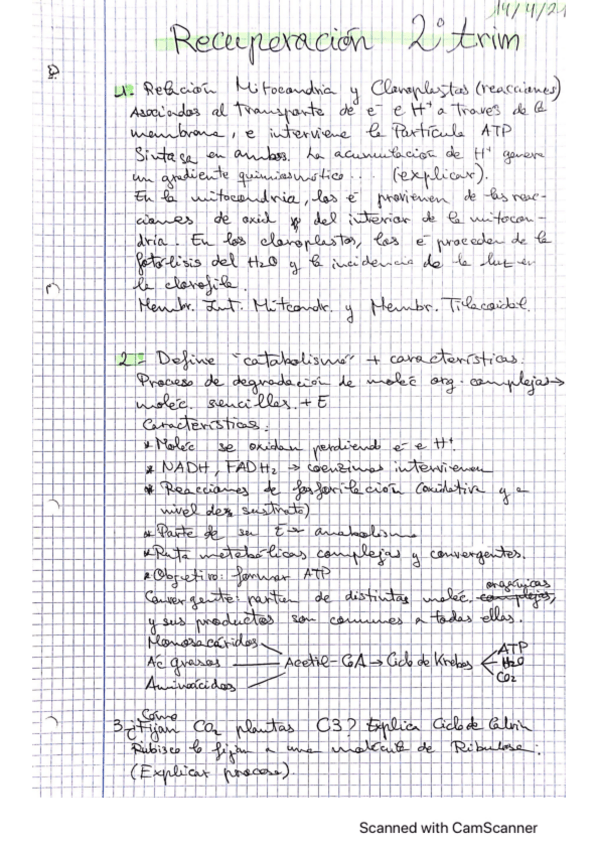 14/4/21
Recuperación 2º trim
1. Relación Mitocondria y Cloroplastos (reacciones)
Asociadas al Transporte de e- e H+ a través de la
membrana, e interviene la Partícula ATP
Sintasa en ambos. La acumulación de H+ genera
un gradiente quimiosmótico... (explicar).
En la mitocondria, los e- provienen de las reac-
ciones de oxid y del interior de la mitocon-
dria. En los cloroplastos, los e- proceden de la
fotólisis del H2O y la incidencia de la luz en
la clorofila.
Membr. Int. Mitcondr. y Membr. Tilacoidal.
2.- Define "catabolismo" + características.
Proceso de degradación de moléc org. complejas→
moléc. sencillas. + E
Características:
* Moléc se oxidan perdiendo e- e H+.
* NADH, FADH2 → coenzimas intervienen
* Reacciones de fosforilación (oxidativa y a
nivel de sustrato)
* Parte de su E → anabolismo
* Ruta metabólicas complejas y convergentes.
* Objetivo: formar ATP
Convergente: parten de distintas moléc. orgánicas complejas,
y sus productos son comunes a todas ellas.
Monosacáridos
Ac grasos — Acetil-CoA → Ciclo de Krebs
Aminoácidos
ATP
H2O
CO2
3.- ¿Cómo Fijan CO2 plantas C3? Explica Ciclo de Calvin
Rubisco lo fijan a una molécula de Ribulosa.
(Explicar proceso).
Scanned with CamScanner